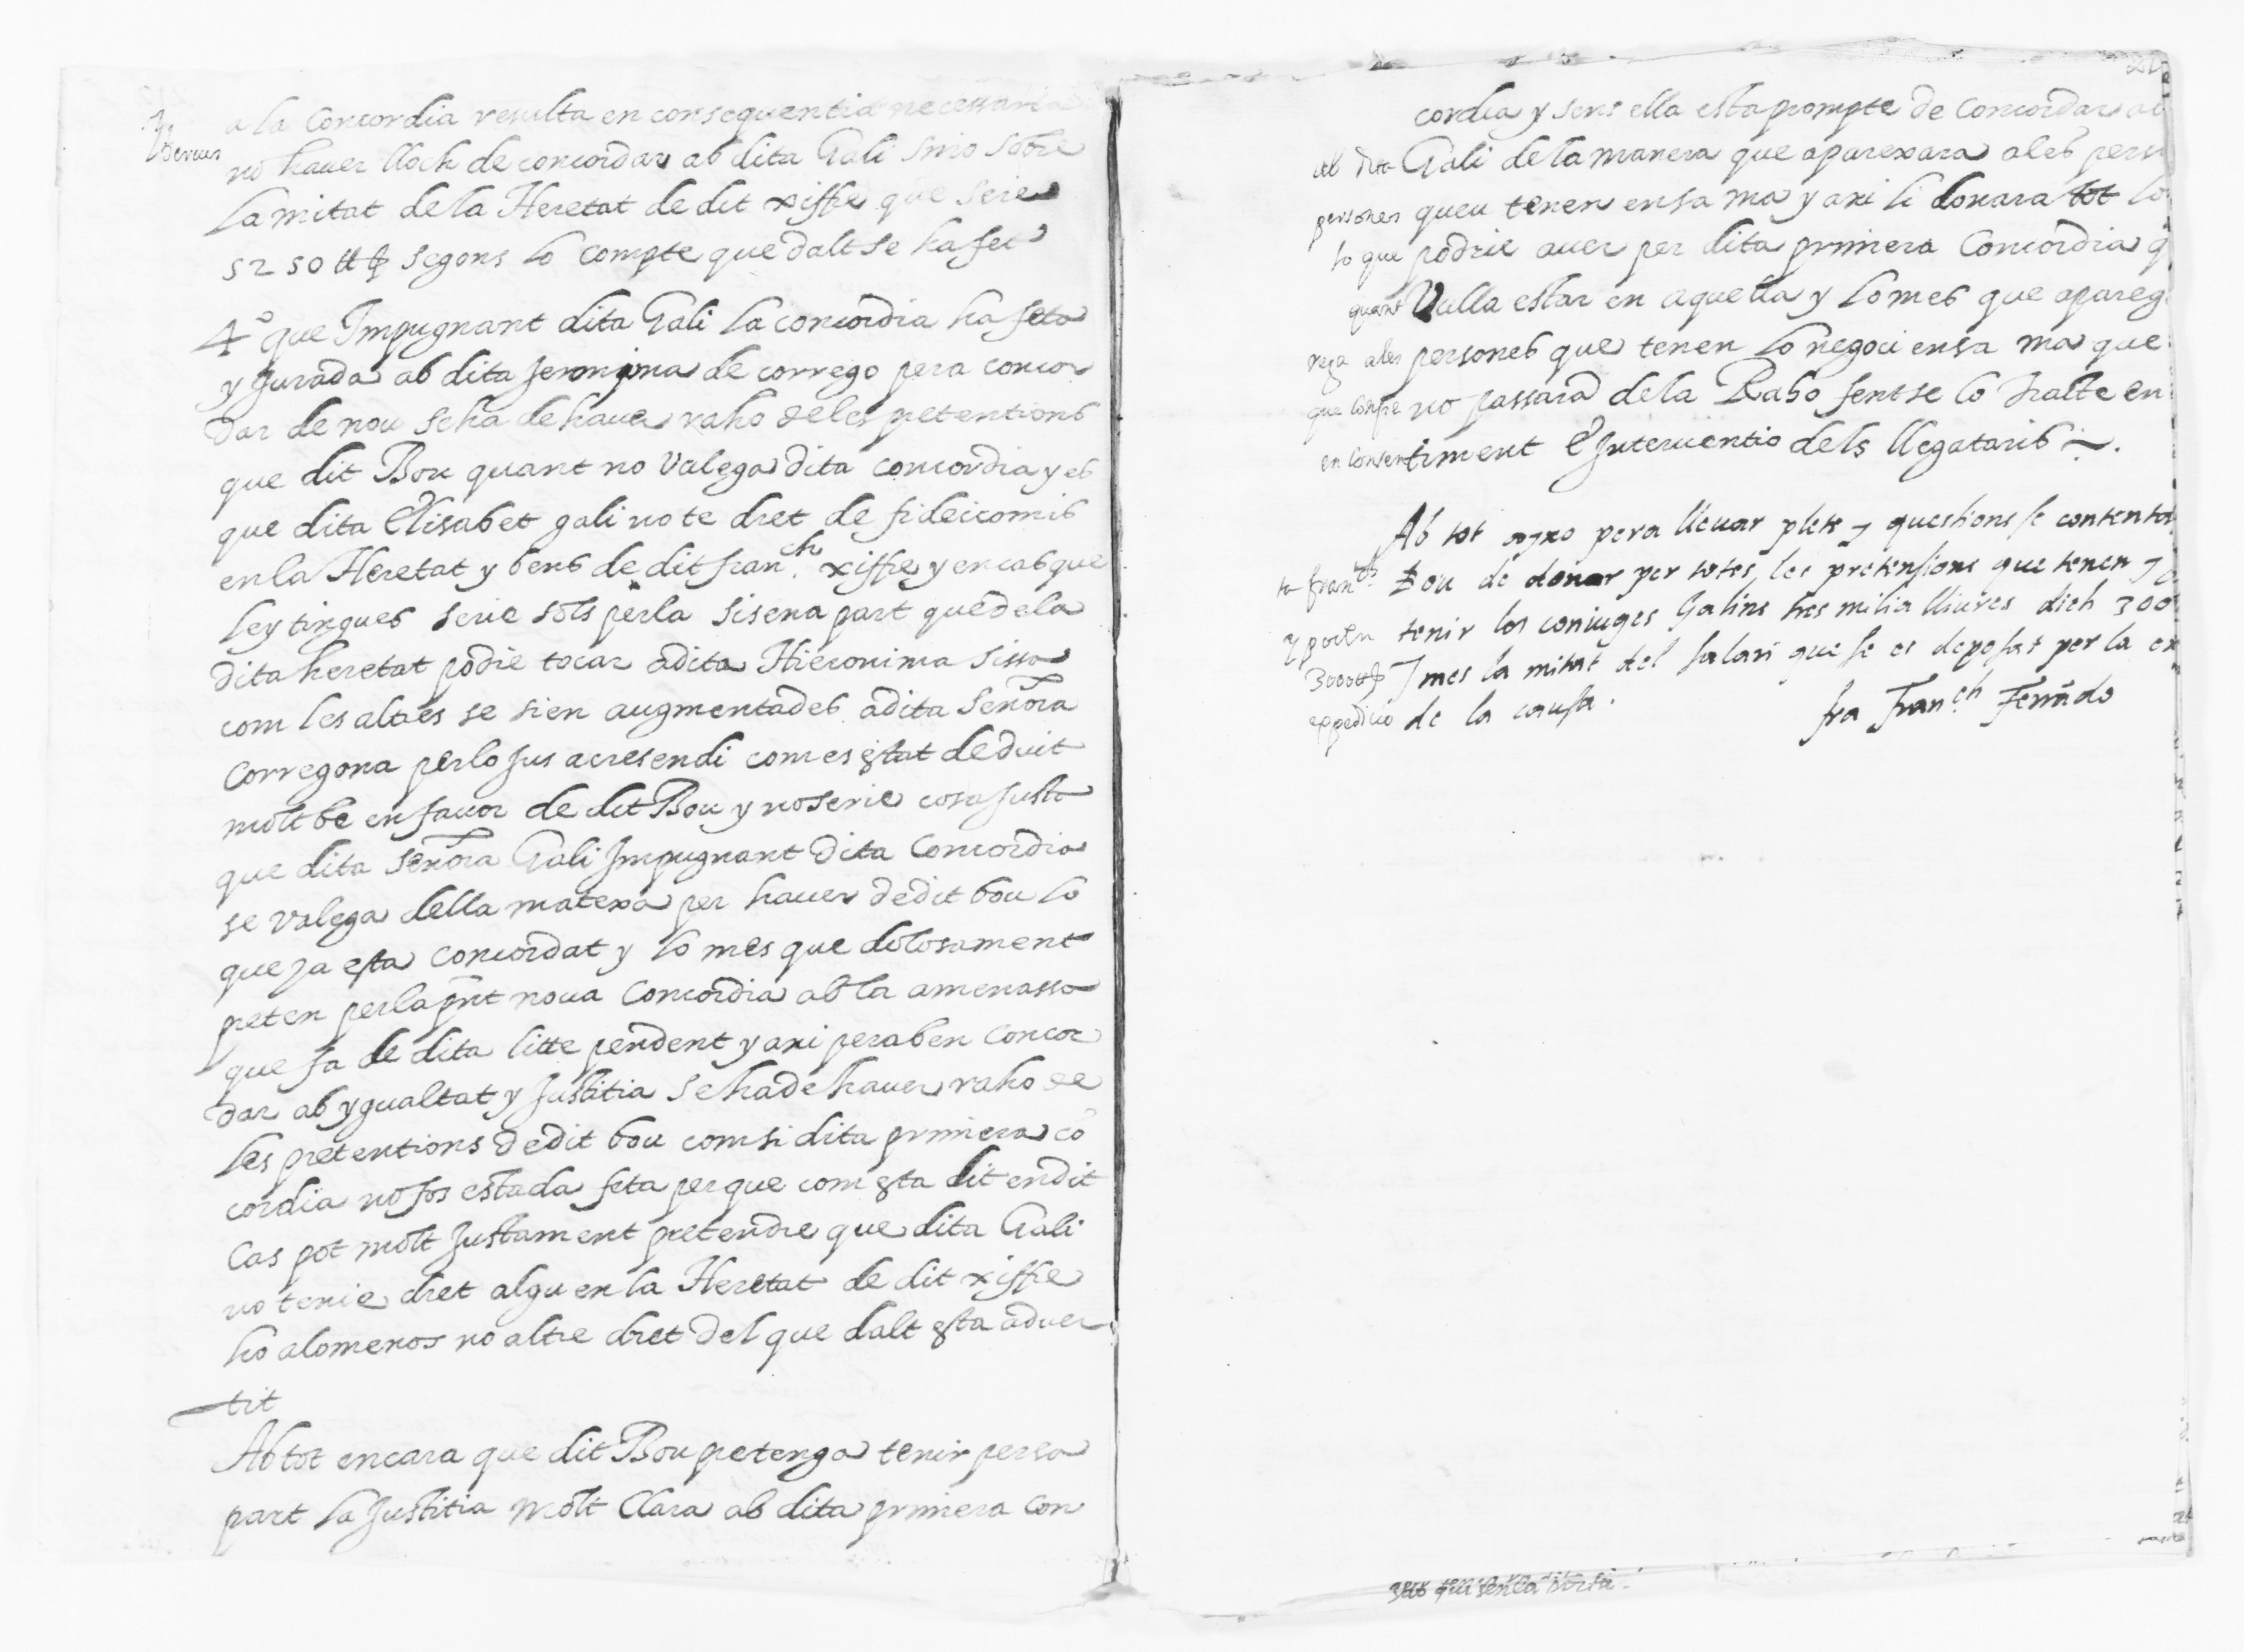 a la Concordia resulta en consequentia necessaria
no hauer lloch de concordar ab dita Gali sino sobre
la mitat de la Heretat de dit xiffre que serie
5250 ₶ segons lo compte que dalt se ha fet
4º que Impugnant dita Gali la concordia ha feta
y Jurada ab dita Jeronima de corrego pera concor
dar de nou se ha de hauer raho de les pretentions
que dit Bou quant no valega dita concordia y es
que dita Elisabet gali no te dret de fideicomis
en la Heretat y bens de dit franch. xiffre y en cas que
ley tingues serie sols per la sisena part que de la
dita heretat podie tocar a dita Hieronima Sissa
com les altres se sien augmentades a dita Señora
Corregona per lo Jus acresendi com es estat deduit
molt be en fauor de dit Bou y no serie cosa Justa
que dita Señora Gali Impugnant dita Concordia
se valega della matexa per hauer de dit bou lo
que ja esta concordat y lo mes que dolosament
preten per la pñt noua Concordia ab la amenassa
que fa de dita litte pendent y axi pera ben concor
dar ab ygualtat y Justitia se ha de hauer raho de
les pretentions de dit bou com si dita primera co
cordia no fos estada feta perque com esta dit en dit
Cas pot molt Justament pretendre que dita Gali
no tenie dret algu en la Heretat de dit xiffre
ho alomenos no altre dret del que dalt esta aduer
tit
Ab tot encara que dit Bou pretenga tenir per sa
part la Justitia molt Clara ab dita primera Con
cordia y sens ella esta prompte de Concordar ab
ab dita Gali de la manera que aparexara a les pers
persones queu tenen en sa ma y axi li donara tot lo
lo que podrie auer per dita primera Concordia q
quant Vulla estar en aquella y lo mes que apareg
rega a les persones que tenen lo negoci en sa ma que
que compte no passara de la Raho fentse lo tracte en
en consentiment e Interuentio dels llegataris
Ab tot axo pera lleuar plets y questions se contenta
ta franch Bou de donar per totes les pretensions que tenen y p
y poden tenir los coniuges Galins tres milia lliures dich 300
3000₶ y mes la mitat del salari que se es deposat per la ex
expedicio de la causa.
fra Franch Ferrãdo